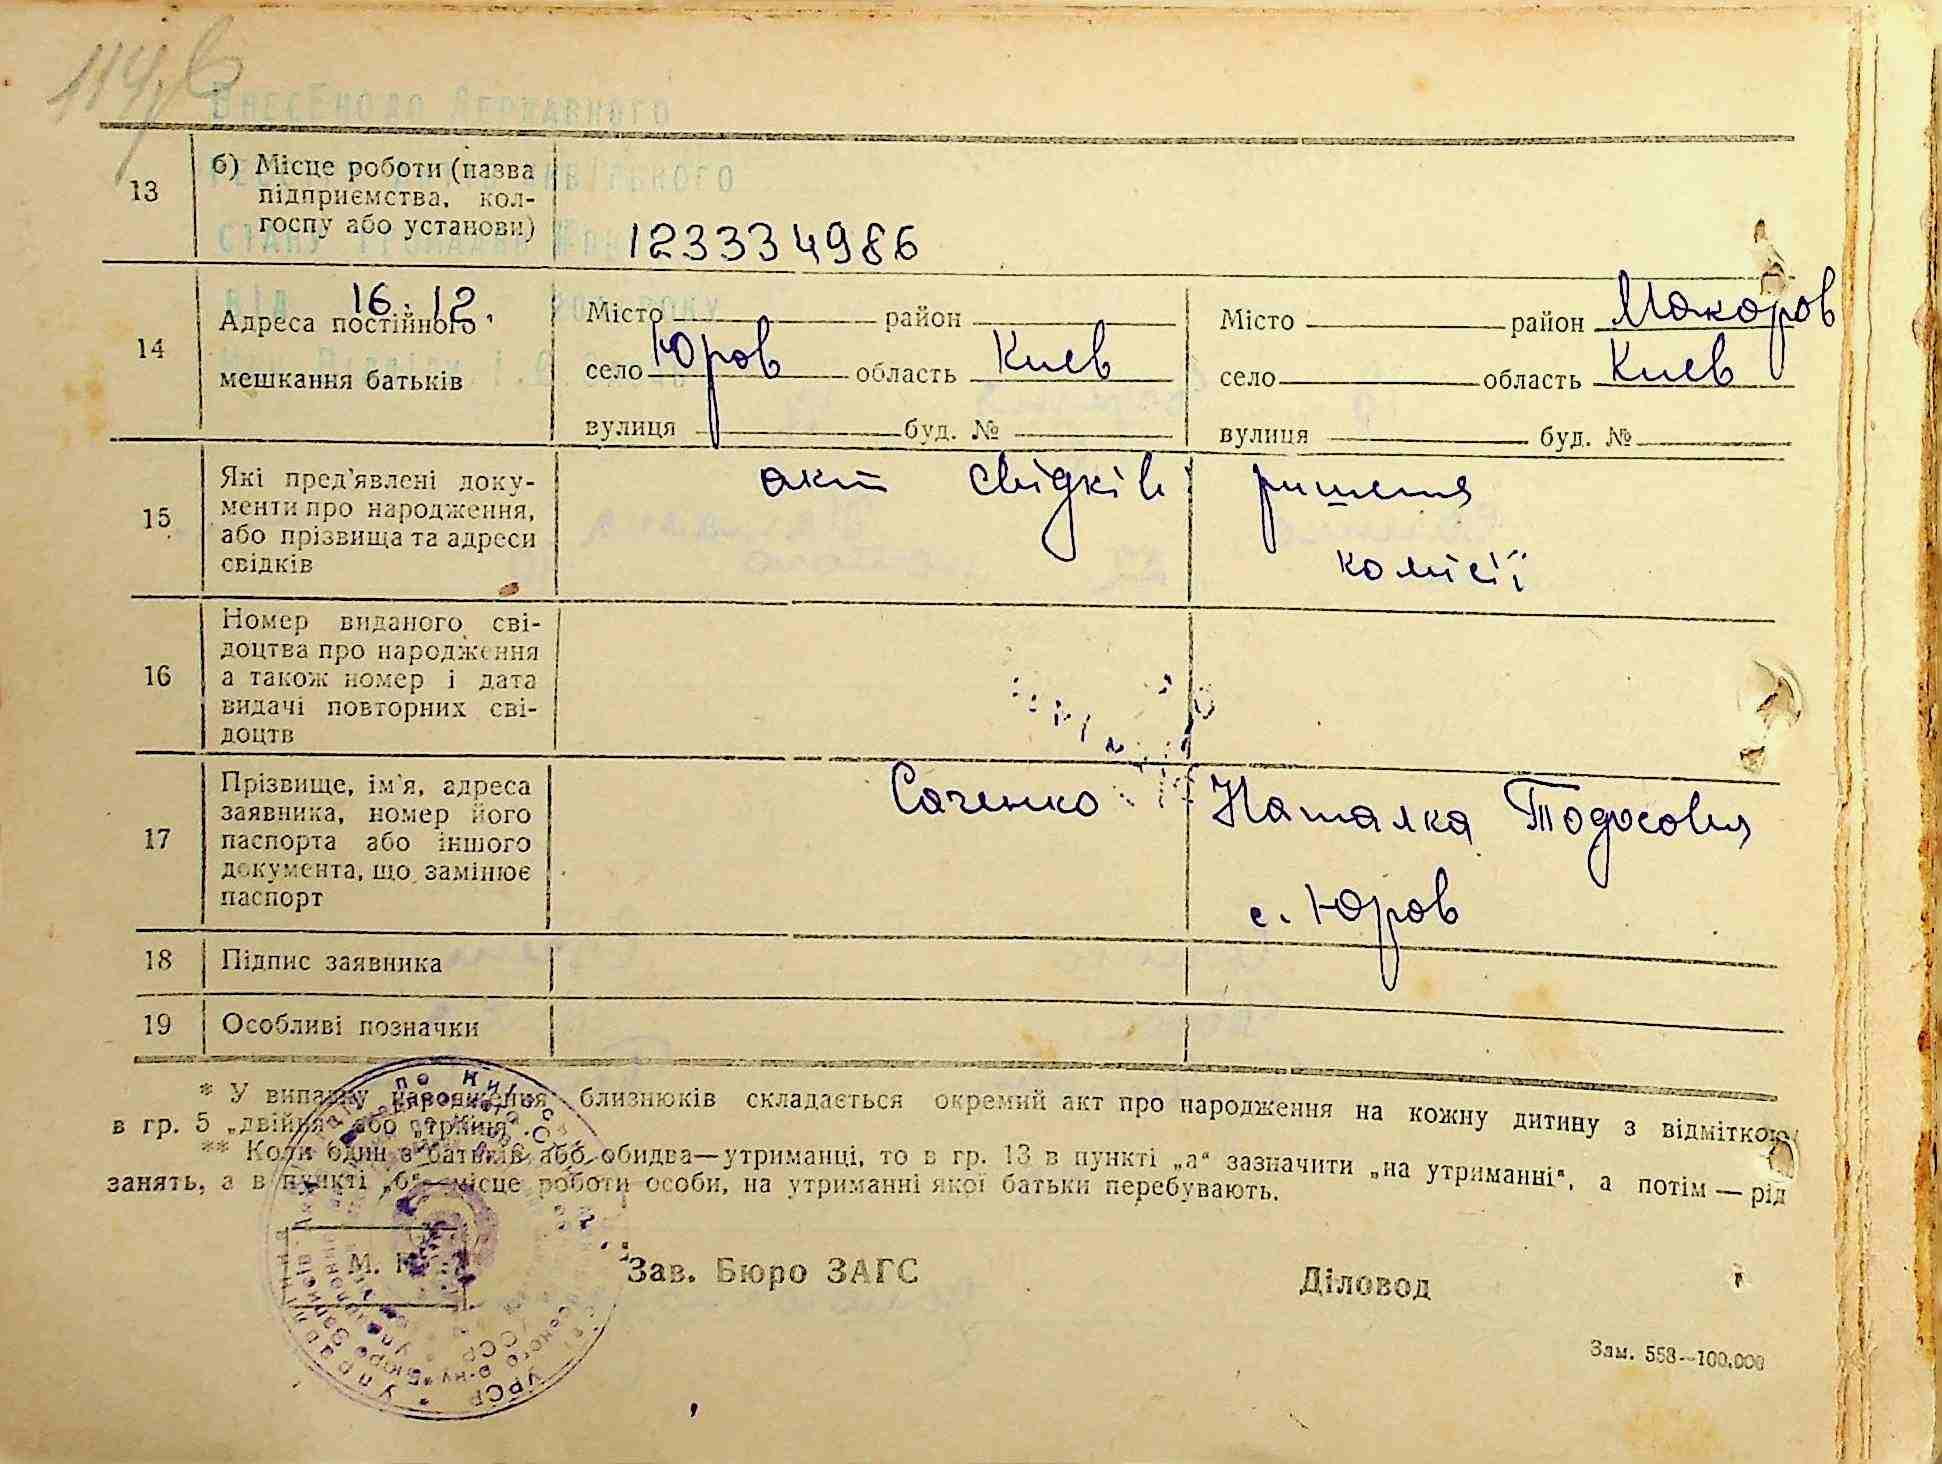 114
Внесено до Державного
13
б) Місце роботи (назва
підприємства, кол-
госпу або установи)
1233334986
від 16.12. року
14
Адреса постійного
мешкання батьків
Місто район
село Юров область Киев
вулиця буд. №
Місто район Макаров
село область Киев
вулиця буд. №
15
Які пред'явлені доку-
менти про народження,
або прізвища та адреси
свідків
акт свідків рішення
комісії
16
Номер виданого сві-
доцтва про народження
а також номер і дата
видачі повторних сві-
доцтв
17
Прізвище, ім'я, адреса
заявника, номер його
паспорта або іншого
документа, що замінює
паспорт
Саченко Наталка Тодосовна
с. Юров
18
Підпис заявника
19
Особливі позначки
* У випадку народження близнюків складається окремий акт про народження на кожну дитину з відміткою
в гр. 5 „двійня“ або „трійня“.
** Коли один з батьків або обидва—утриманці, то в гр. 13 в пункті „а“ зазначити „на утриманні“, а потім — рід
занять, а в пункті „б“—місце роботи особи, на утриманні якої батьки перебувають.
М.
Зав. Бюро ЗАГС
Діловод
Зам. 558—100.000